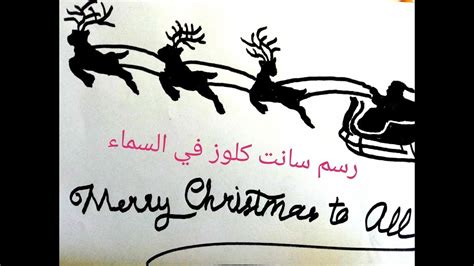 رسم سانت كلوز في السماء
Merry Christmas to All